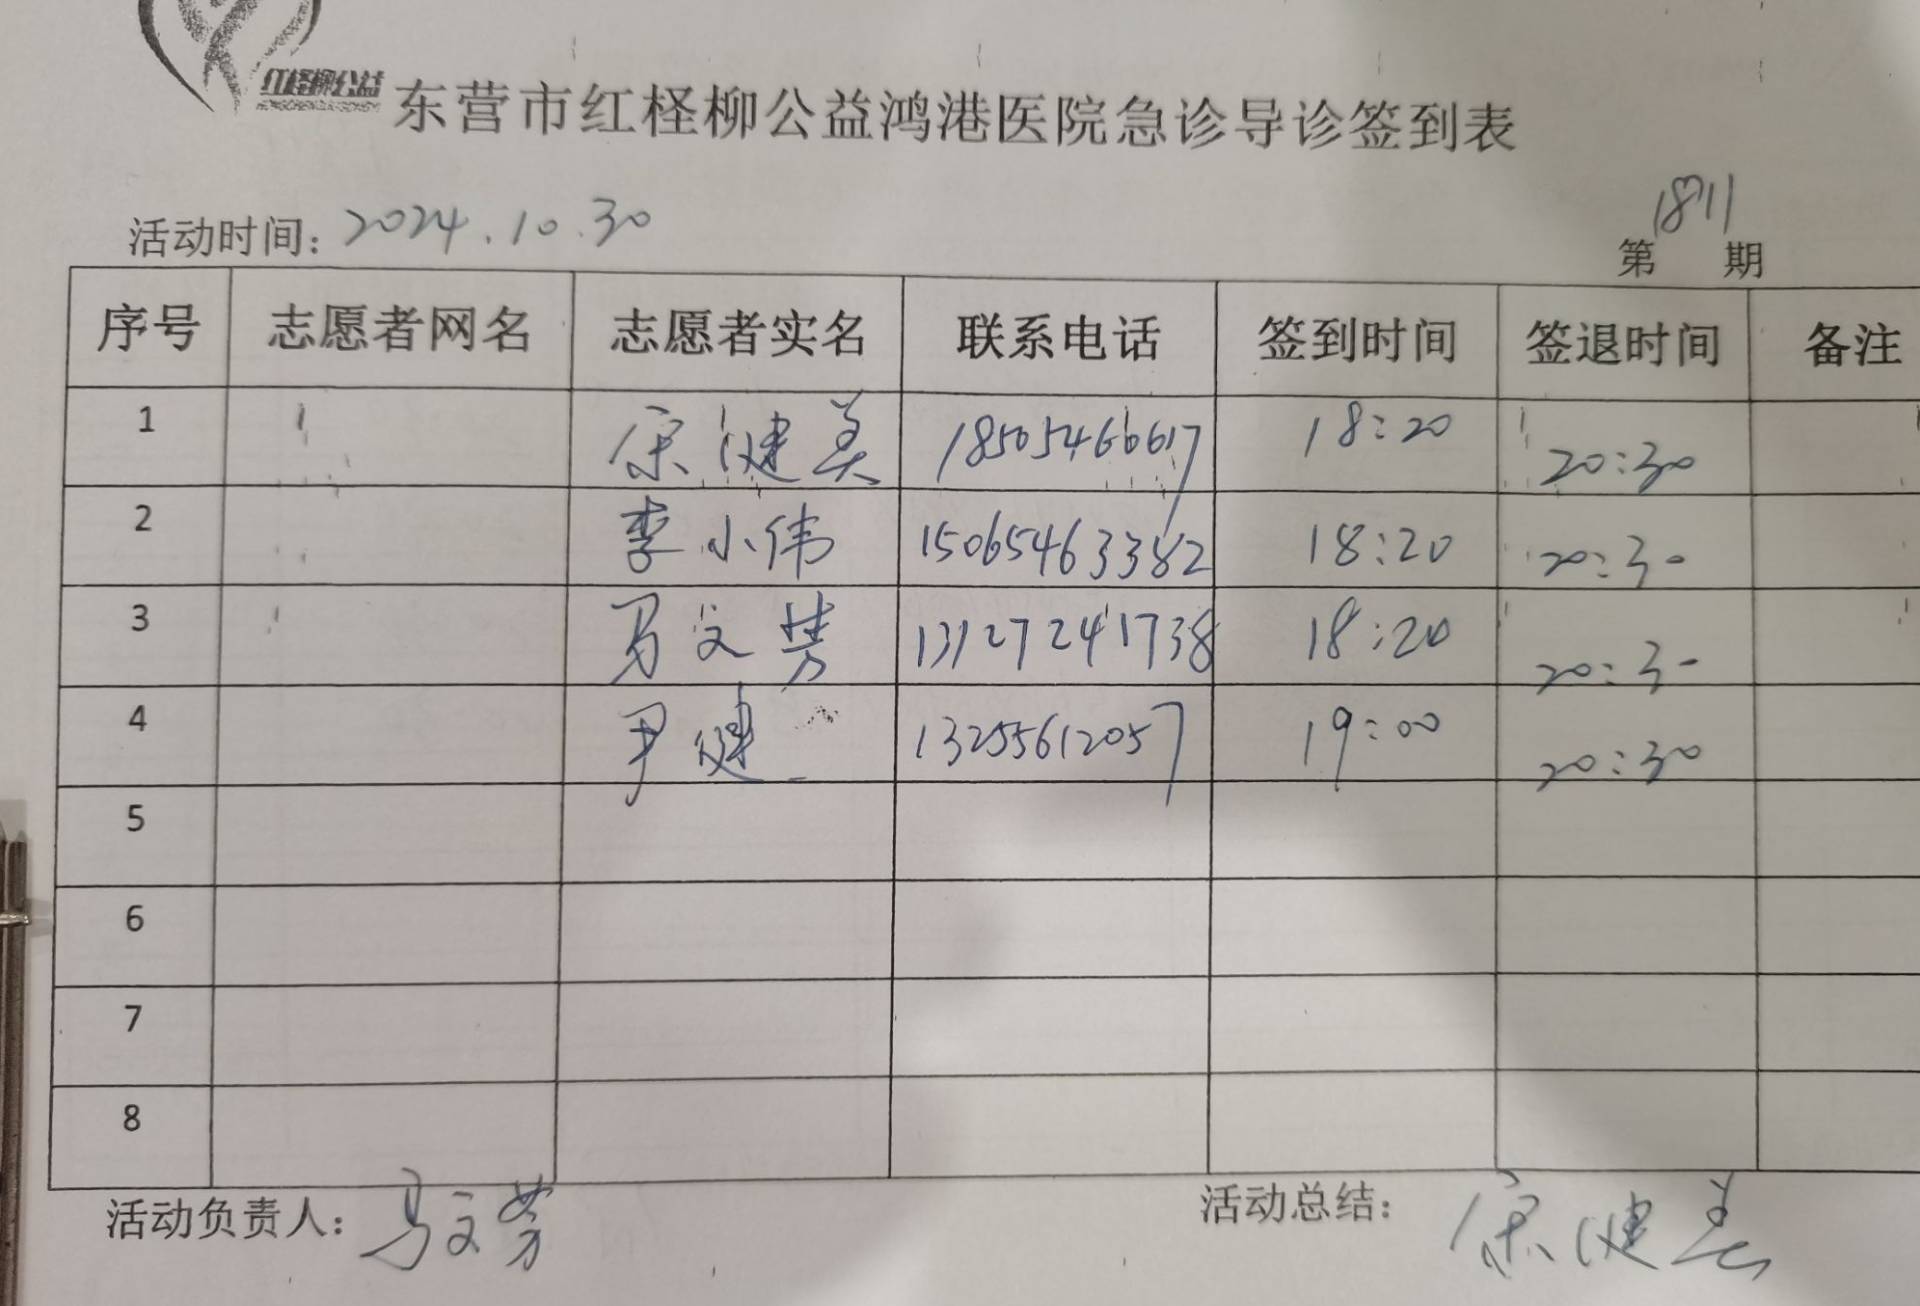 红柽柳公益
东营市红柽柳公益鸿港医院急诊导诊签到表
活动时间：2024.10.30 第1871期
序号 志愿者网名 志愿者实名 联系电话 签到时间 签退时间 备注
1 宋健美 18505466617 18:20 20:30
2 李小伟 15065463382 18:20 20:30
3 马文芳 13127241738 18:20 20:30
4 尹健 13255612057 19:00 20:30
5
6
7
8
活动负责人：马文芳 活动总结：宋健美